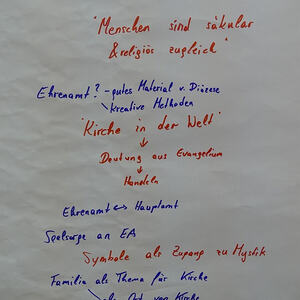 "Menschen sind säkular
& religiös zugleich"
Ehrenamt? - gutes Material v. Diözese
kreative Methoden
"Kirche in der Welt"
↓
Deutung aus Evangelium
↓
Handeln
Ehrenamt ↔ Hauptamt
Seelsorge an EA
Symbole als Zugang zu Mystik
Familie als Thema für Kirche
als Ort von Kirche